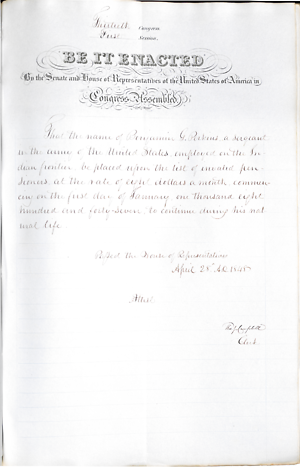 Thirtieth Congress
First Session
BE IT ENACTED
By the Senate and House of Representatives of the United States of America in
Congress Assembled,
That the name of Benjamin G. a sergeant
in the army of the United States employed on the In-
dian frontier be placed upon the list of invalid pen-
sioners, at the rate of eight dollars a month commen-
cing on the first day of January one thousand eight
hundred and forty-seven to continue during his nat-
ural life
Passed the House of Representatives
April 28 AD. 1848.
Attest
Clerk